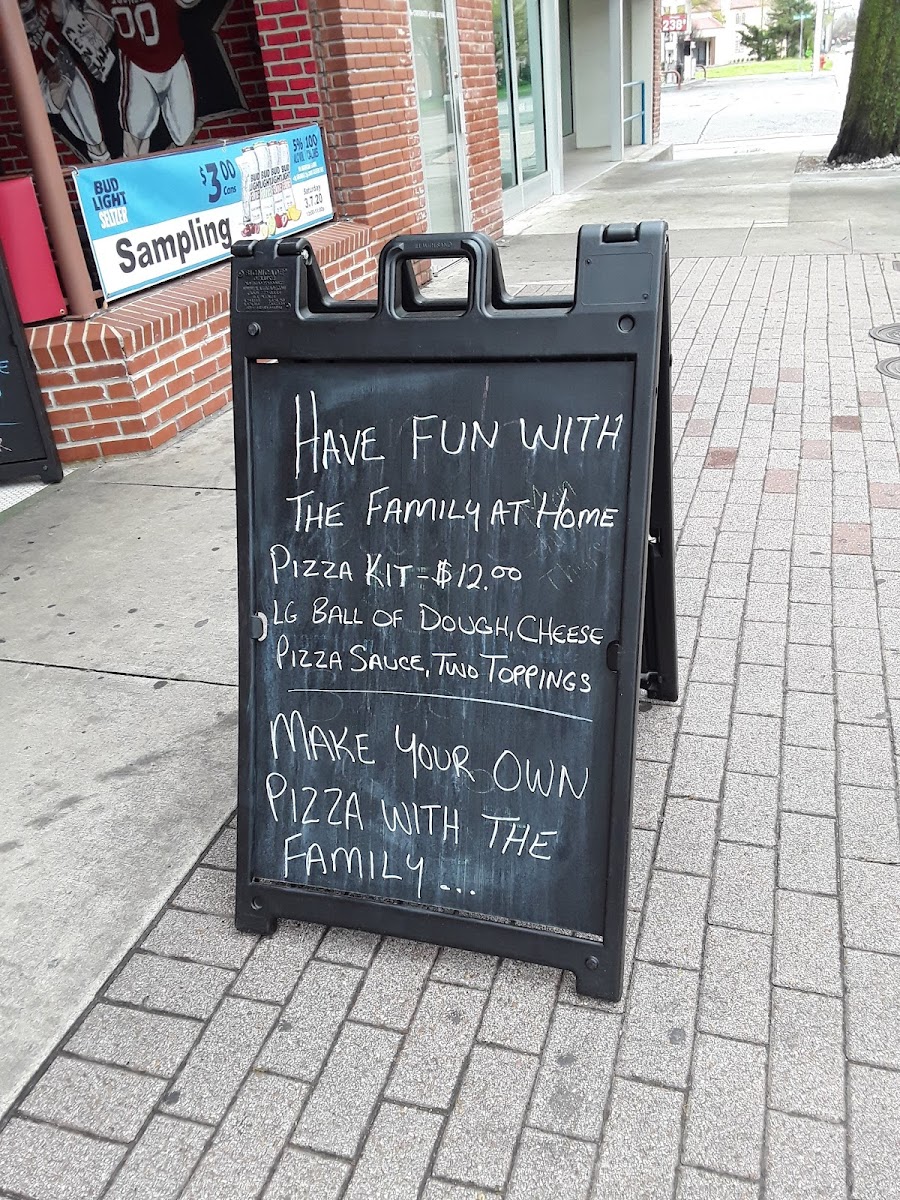 HAVE FUN WITH
THE FAMILY AT HOME
PIZZA KIT = $12.00
LG BALL OF DOUGH, CHEESE
PIZZA SAUCE, TWO TOPPINGS
MAKE YOUR OWN
PIZZA WITH THE
FAMILY ...
BUD
LIGHT
SELTZER
$3.00
Cans
Sampling
5% 100
Saturday
3.7.20
00
238